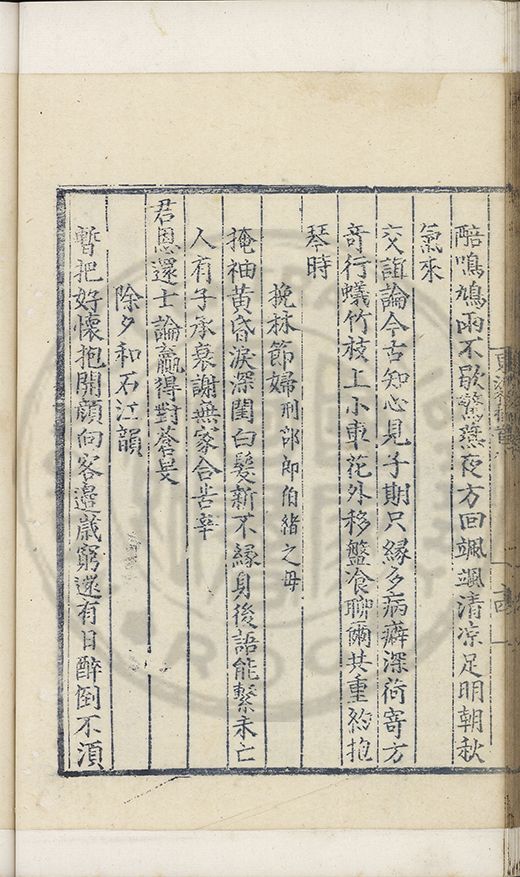 鳴鳩雨不歇驚夜方回颯颯清凉足明朝秋
氣來
交誼論今古知心見子期只緣多病癖深荷寄方
奇行蟻竹枝上小車花外移盤飡聊爾共重約抱
琴時
挽林節婦刑部郎伯緒之母
掩袖黄昏淚深閨白髮新不緣身後語能繫未亡
人有子承衰謝無家合苦辛
君恩還士論贏得對蒼旻
除夕和石江韻
暫把好懷抱開顔向客邊歲窮還有日醉倒不須